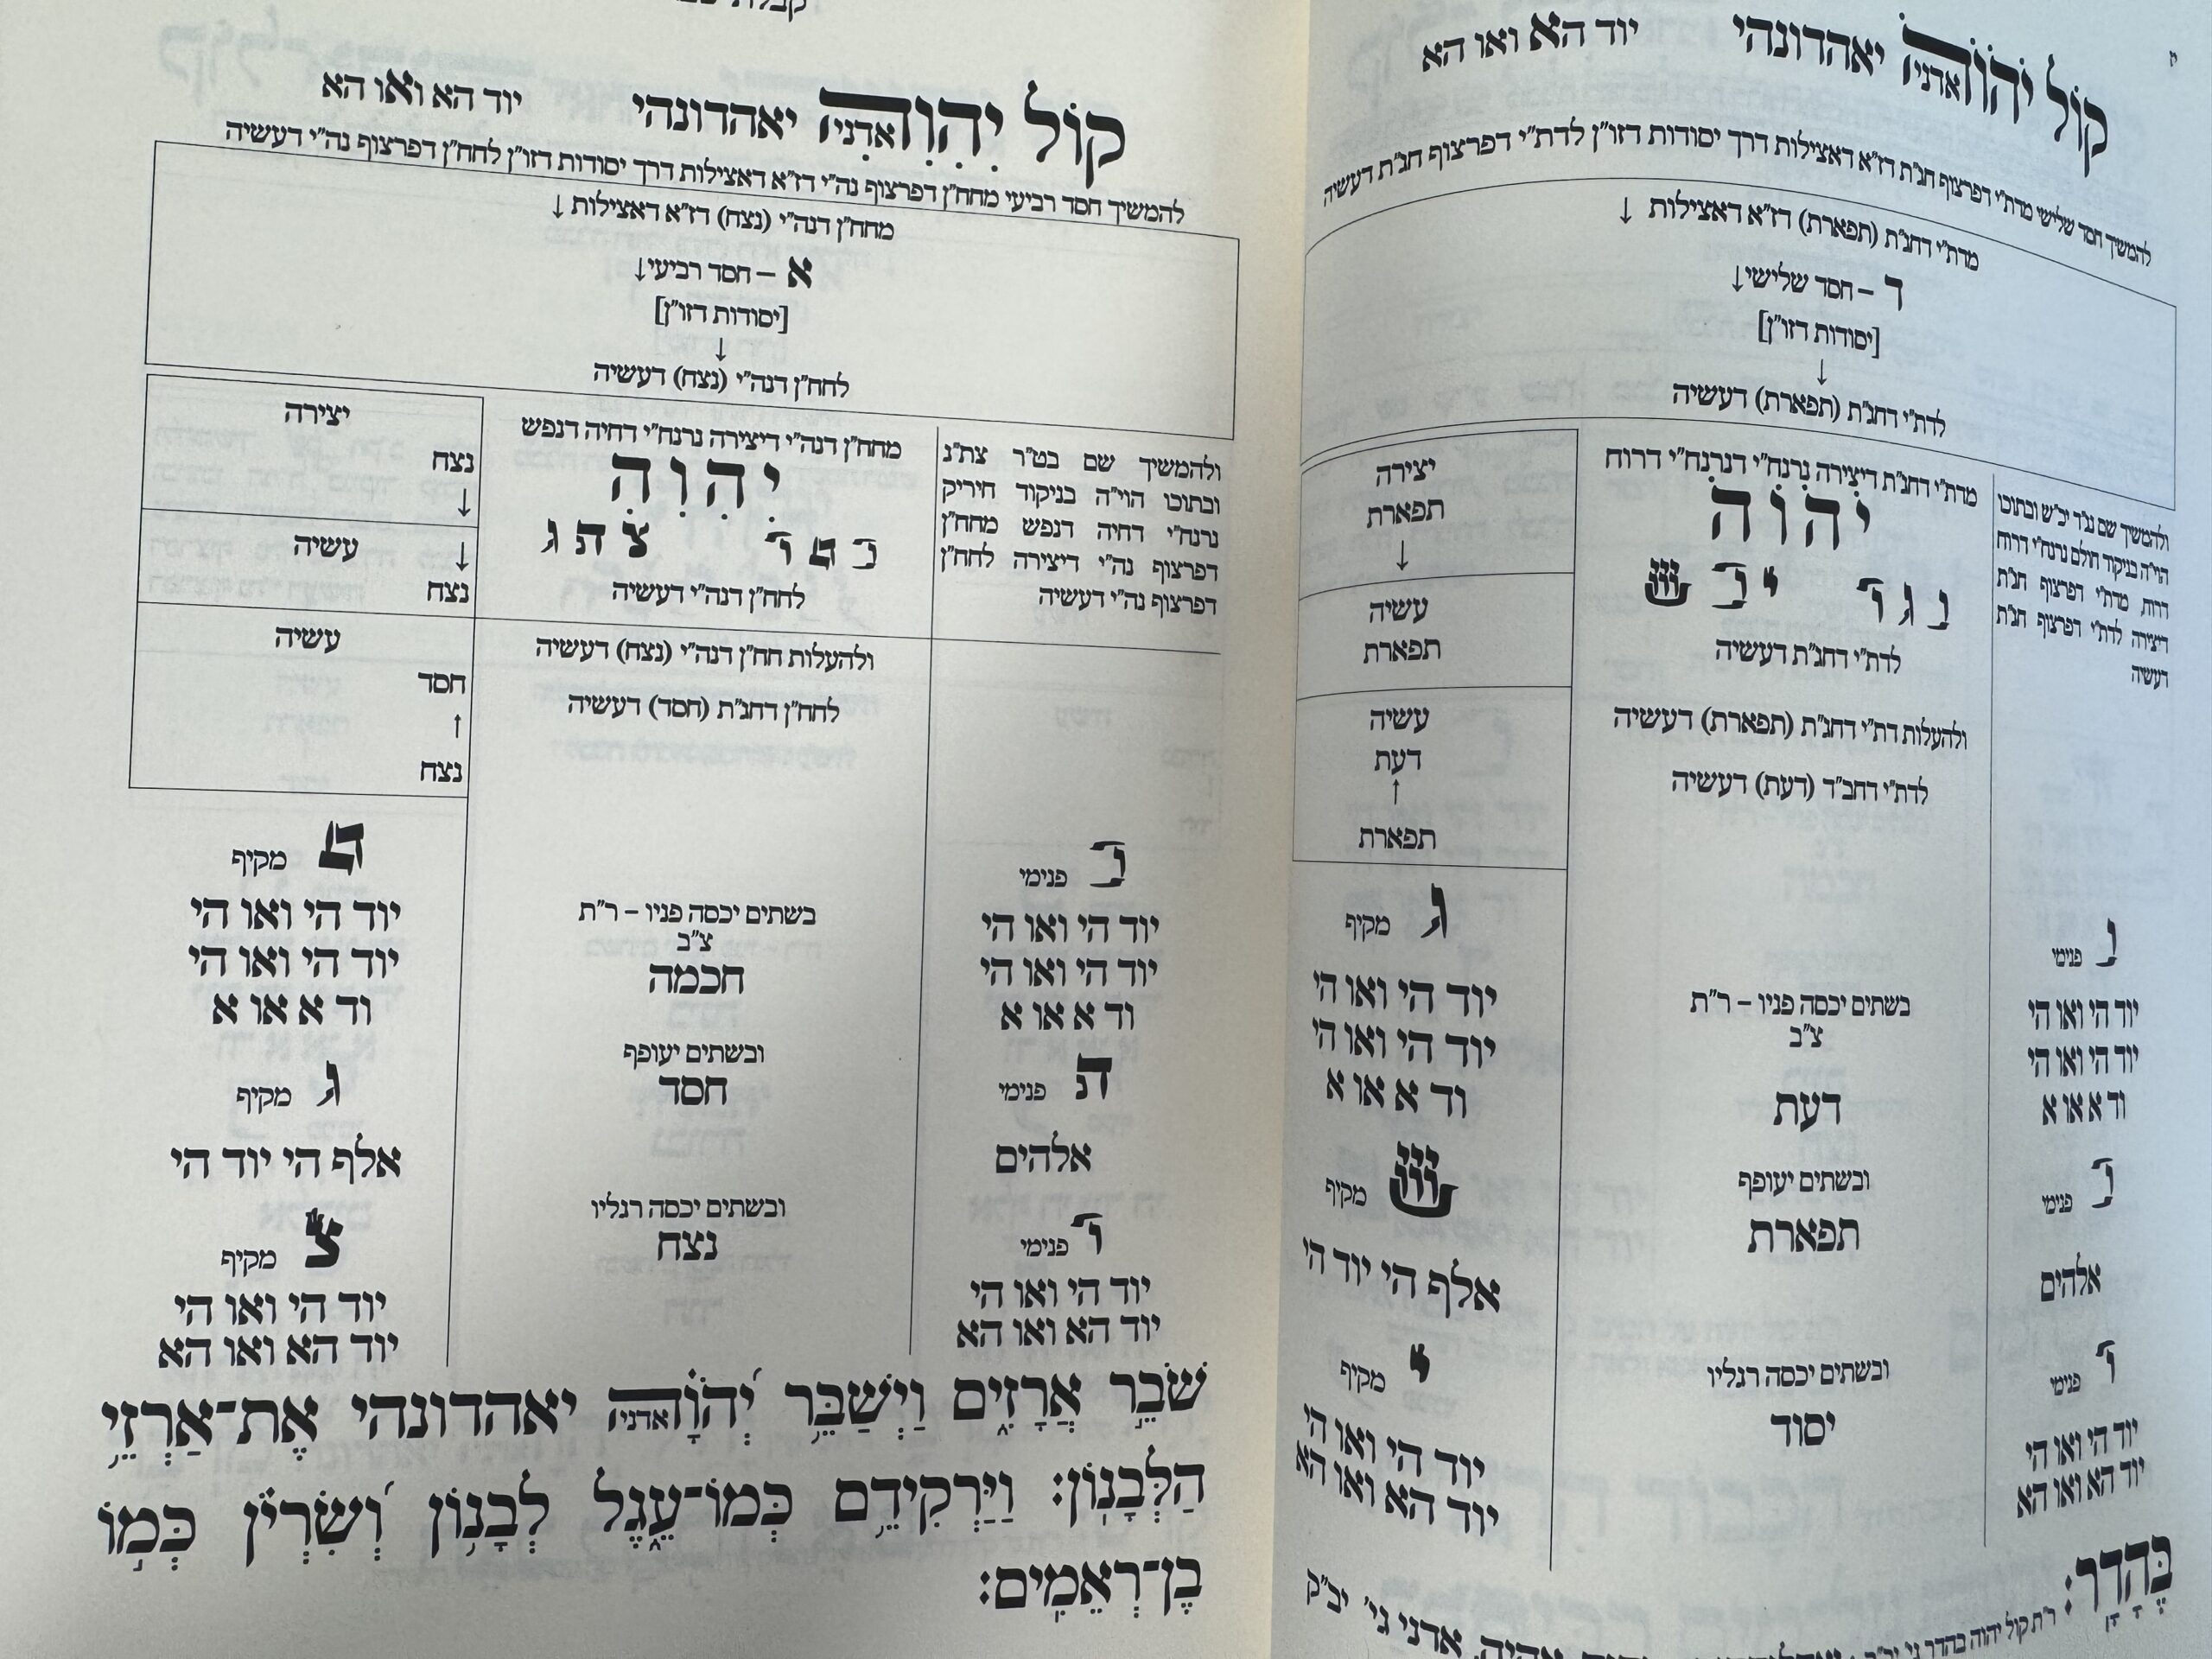 יז
קוֹל יֹהֹוֹהֹ אדני יאהדונהי יוד הא ואו הא
להמשיך חסד שלישי מדת"י דפרצוף חג"ת דז"א דאצילות דרך יסודות דזו"ן לדת"י דפרצוף חג"ת דעשיה
מדת"י דחג"ת (תפארת) דז"א דאצילות ↓
ד – חסד שלישי ↓
[יסודות דזו"ן]
↓
לדת"י דחג"ת (תפארת) דעשיה
ולהמשיך שם נג"ד יכ"ש ובתוכו
הוי"ה בניקוד חולם נרנח"י דרוח
דרוח, מדת"י דפרצוף חג"ת
דיצירה לדת"י דפרצוף חג"ת
דעשיה
מדת"י דחג"ת דיצירה נרנח"י דנרנח"י דרוח
יֹהֹוֹהֹ
נ ג ד י כ ש
לדת"י דחג"ת דעשיה
יצירה
תפארת
↓
עשיה
תפארת
ולהעלות דת"י דחג"ת (תפארת) דעשיה
לדת"י דחב"ד (דעת) דעשיה
עשיה
דעת
↑
תפארת
נ פנימי
יוד הי ואו הי
יוד הי ואו הי
וד א או א
כ פנימי
אלהים
ד פנימי
יוד הי ואו הי
יוד הא ואו הא
בשתים יכסה פניו – ר"ת
צ"ב
דעת
ובשתים יעופף
תפארת
ובשתים יכסה רגליו
יסוד
ג מקיף
יוד הי ואו הי
יוד הי ואו הי
וד א או א
ש מקיף
אלף הי יוד הי
י מקיף
יוד הי ואו הי
יוד הא ואו הא
בֶּהָדָר:
ר"ת קול יהוה בהדר גי' יב"ק
אהיה, אדני גי' יב"ק
קוֹל יִהִוִהִ אדני יאהדונהי יוד הא ואו הא
להמשיך חסד רביעי מחח"ן דפרצוף נה"י דז"א דאצילות דרך יסודות דזו"ן לחח"ן דפרצוף נה"י דעשיה
מחח"ן דנה"י (נצח) דז"א דאצילות ↓
א – חסד רביעי ↓
[יסודות דזו"ן]
↓
לחח"ן דנה"י (נצח) דעשיה
ולהמשיך שם בט"ר צת"ג
ובתוכו הוי"ה בניקוד חיריק
נרנח"י דחיה דנפש מחח"ן
דפרצוף נה"י דיצירה לחח"ן
דפרצוף נה"י דעשיה
מחח"ן דנה"י דיצירה נרנח"י דחיה דנפש
יִהִוִהִ
ב ט ר צ ת ג
לחח"ן דנה"י דעשיה
יצירה
נצח
↓
עשיה ↓
נצח
ולהעלות חח"ן דנה"י (נצח) דעשיה
לחח"ן דחג"ת (חסד) דעשיה
עשיה
חסד
↑
נצח
ב פנימי
יוד הי ואו הי
יוד הי ואו הי
וד א או א
ת פנימי
אלהים
ר פנימי
יוד הי ואו הי
יוד הא ואו הא
בשתים יכסה פניו – ר"ת
צ"ב
חכמה
ובשתים יעופף
חסד
ובשתים יכסה רגליו
נצח
ט מקיף
יוד הי ואו הי
יוד הי ואו הי
וד א או א
ג מקיף
אלף הי יוד הי
צ מקיף
יוד הי ואו הי
יוד הא ואו הא
שֹׁבֵ֣ר אֲרָזִ֑ים וַיְשַׁבֵּ֥ר יְ֝הֹוָ֗ה אדני יאהדונהי אֶת־אַרְזֵ֥י
הַלְּבָנֽוֹן: וַיַּרְקִידֵ֥ם כְּמוֹ־עֵ֑גֶל לְבָנ֥וֹן וְ֝שִׂרְיֹ֗ן כְּמ֣וֹ
בֶן־רְאֵמִֽים: